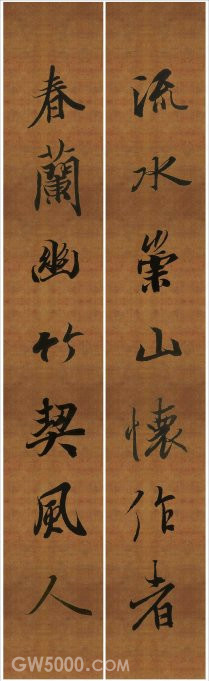 流水崇山懷作者
春蘭幽竹契風人
GW5000.com